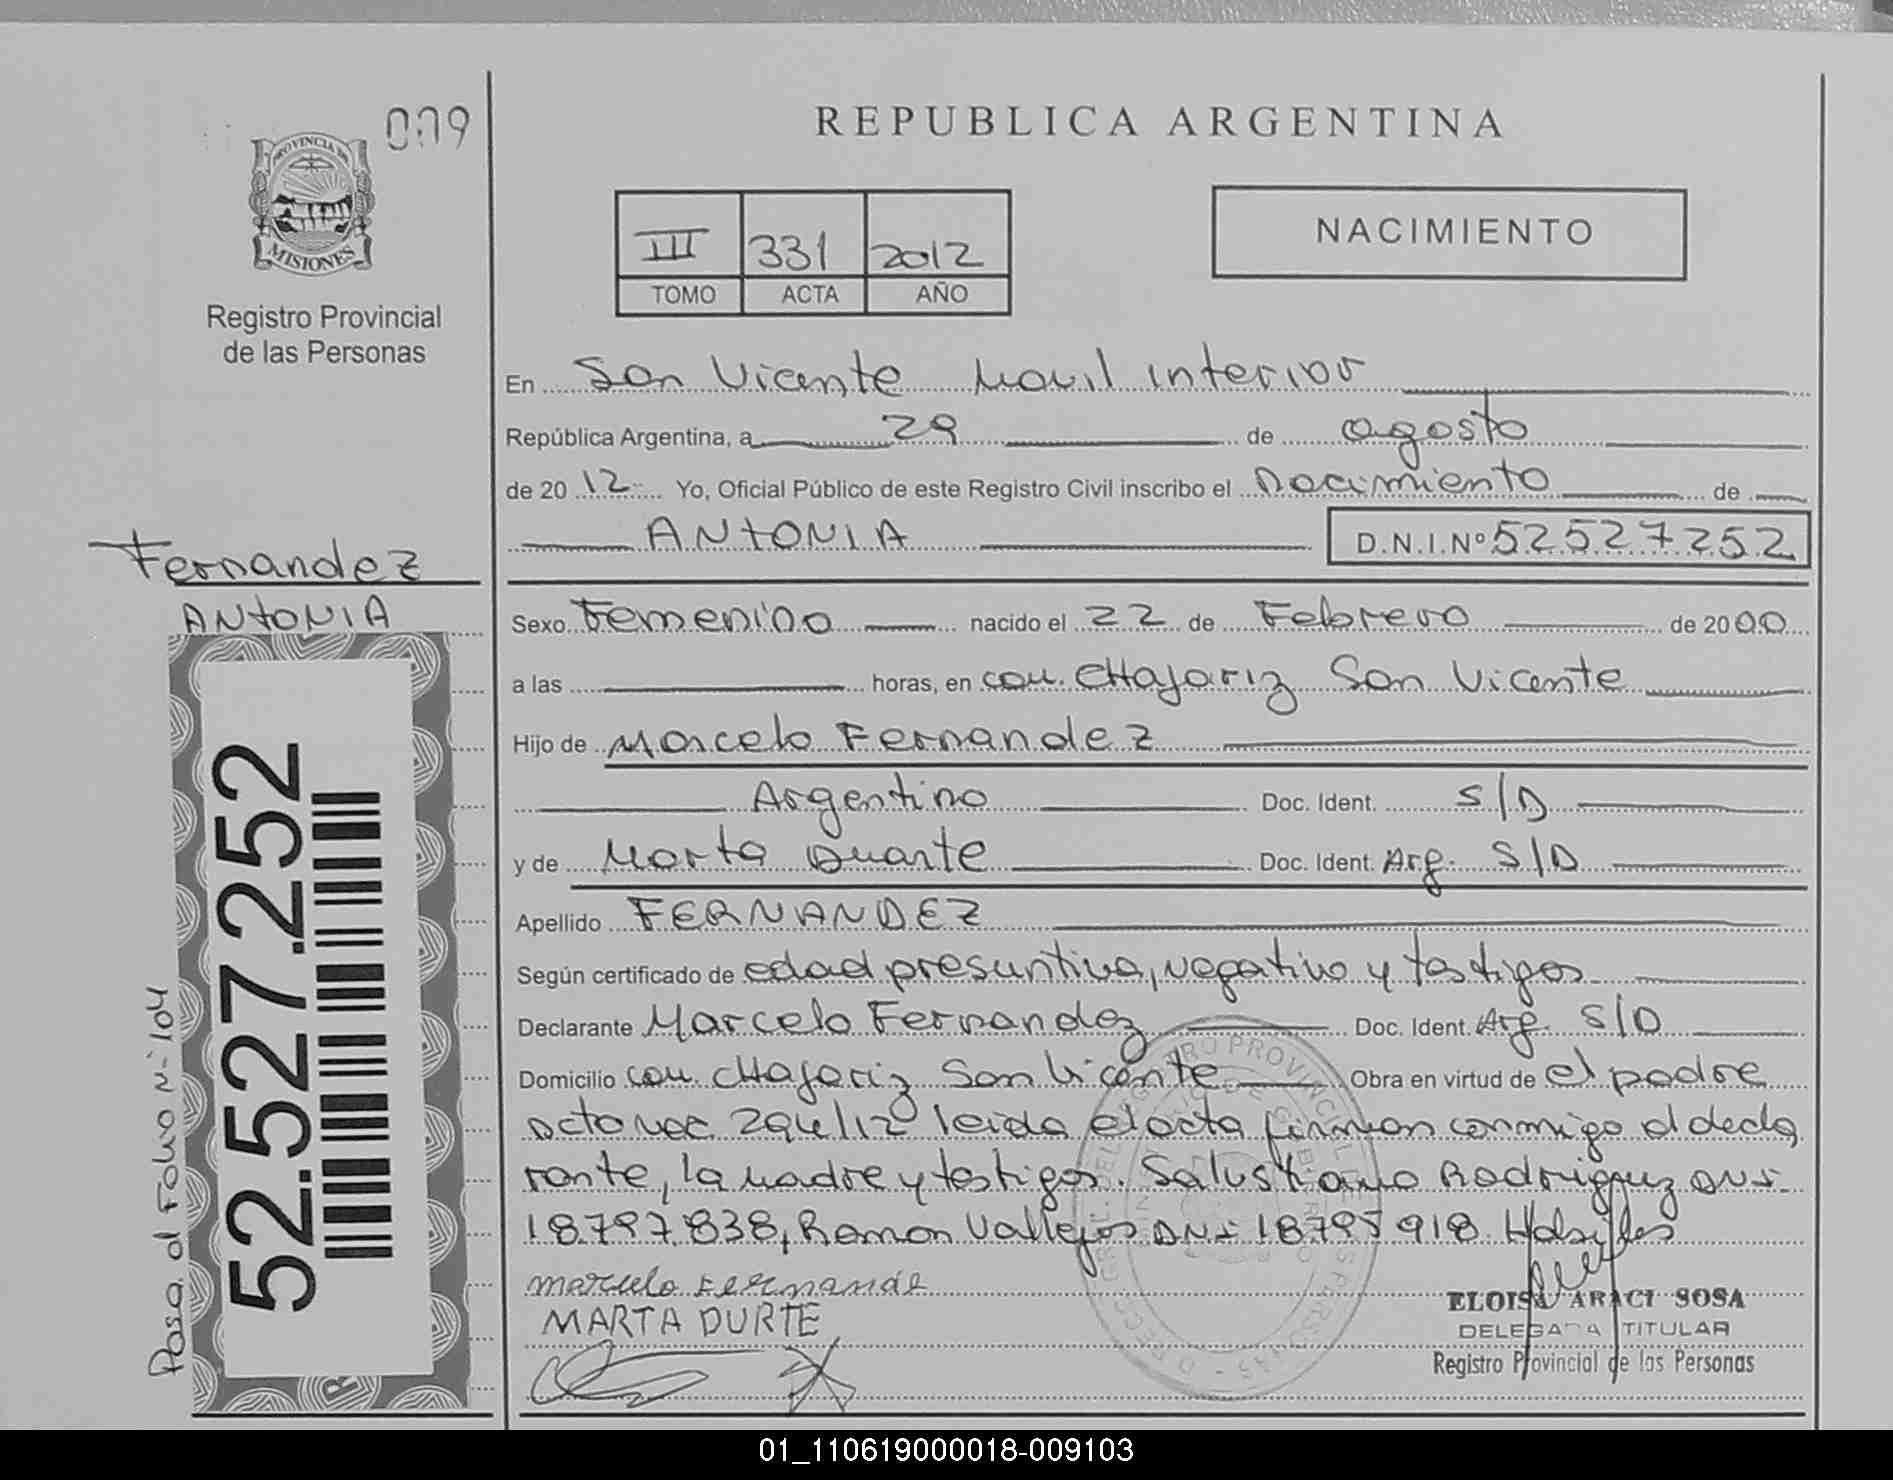 009
PROVINCIA DE
MISIONES
Registro Provincial
de las Personas
Fernandez
ANTONIA
52.527.252
Pasa al Folio N- 104
REPUBLICA ARGENTINA
III 331 2012
TOMO ACTA AÑO
NACIMIENTO
En San Vicente Movil interior
República Argentina, a 29 de agosto
de 20 12 Yo, Oficial Público de este Registro Civil inscribo el Nacimiento de
ANTONIA D.N.I.Nº 52527252
Sexo Femenino nacido el 22 de Febrero de 20 00
a las horas, en com. CHajariz San Vicente
Hijo de Marcelo Fernandez
Argentino Doc. Ident. S/D
y de Marta Duarte Doc. Ident. Arg. S/D
Apellido FERNANDEZ
Según certificado de edad presuntiva, negativo y testigos
Declarante Marcelo Fernandez Doc. Ident. Arg. S/D
Domicilio com. cHajariz San Vicente Obra en virtud de el padre
leida el acta firman conmigo el decla
rante, la madre y testigos. Salustiano Rodriguez DNI-
18.797.838, Ramon Vallejos DNI 18795918
marcelo Fernande
MARTA DURTE
ELOISA ARACI SOSA
DELEGADA TITULAR
Registro Provincial de las Personas
01_110619000018-009103